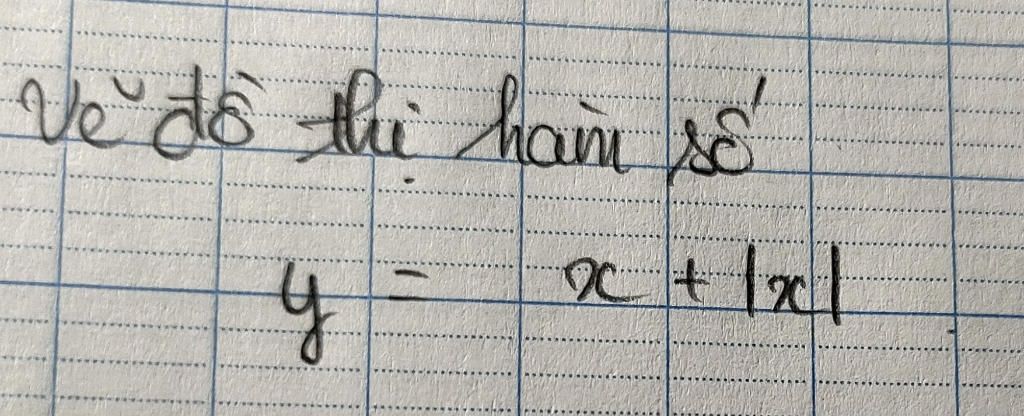 Vẽ đồ thị hàm số
y = x + |x|